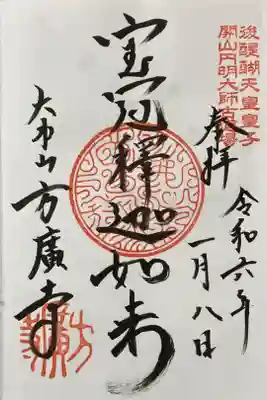 後醍醐天皇皇子
開山円明大師
奉拝
令和六年
一月八日
宝冠釋迦如来
大本山方廣寺